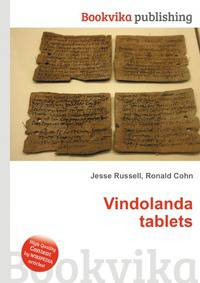 Bookvika publishing
Jesse Russell, Ronald Cohn
Vindolanda
tablets
High Quality
Content
by WIKIPEDIA
articles!
Bookvika